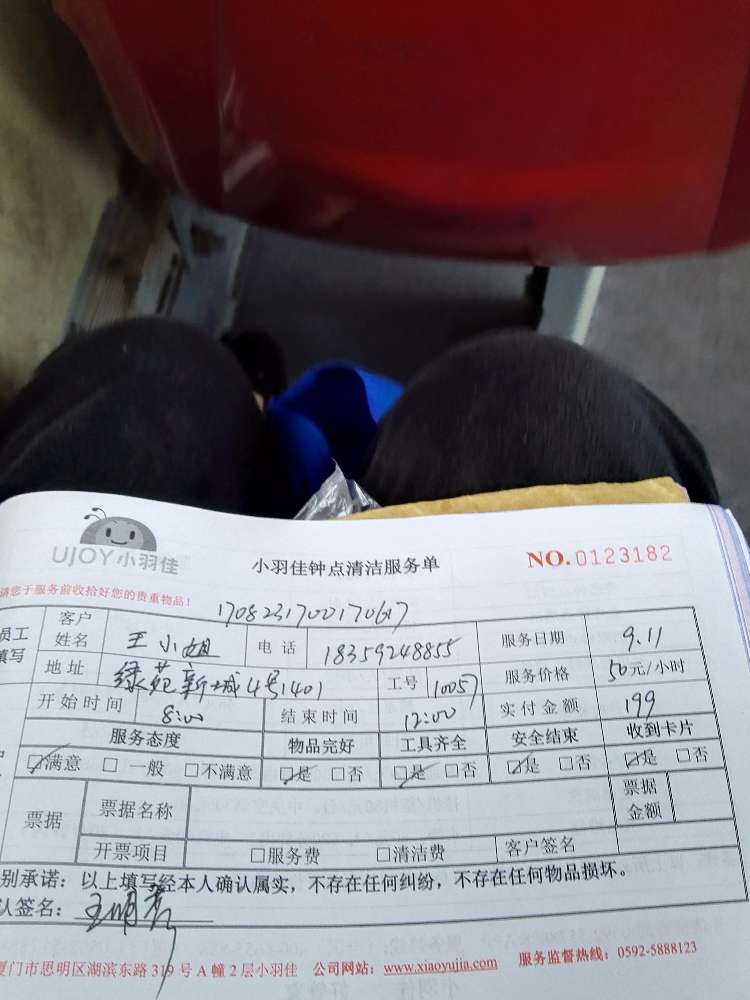 UJOY小羽佳
小羽佳钟点清洁服务单
NO.0123182
请您于服务前收拾好您的贵重物品!
1708231700170617
员工
填写
客户
姓名
王小姐
电话
18359248855
服务日期
9.11
地址
绿苑新城4号1401
工号
10057
服务价格
50元/小时
开始时间
8:00
结束时间
12:00
实付金额
199
服务态度
物品完好
工具齐全
安全结束
收到卡片
☑满意 □一般 □不满意
☑是 □否
☑是 □否
☑是 □否
☑是 □否
票据
票据名称
票据
金额
开票项目
□服务费 □清洁费
客户签名
别承诺:以上填写经本人确认属实,不存在任何纠纷,不存在任何物品损坏。
认签名:
厦门市思明区湖滨东路319号A幢2层小羽佳 公司网站:www.xiaoyujia.com 服务监督热线:0592-5888123